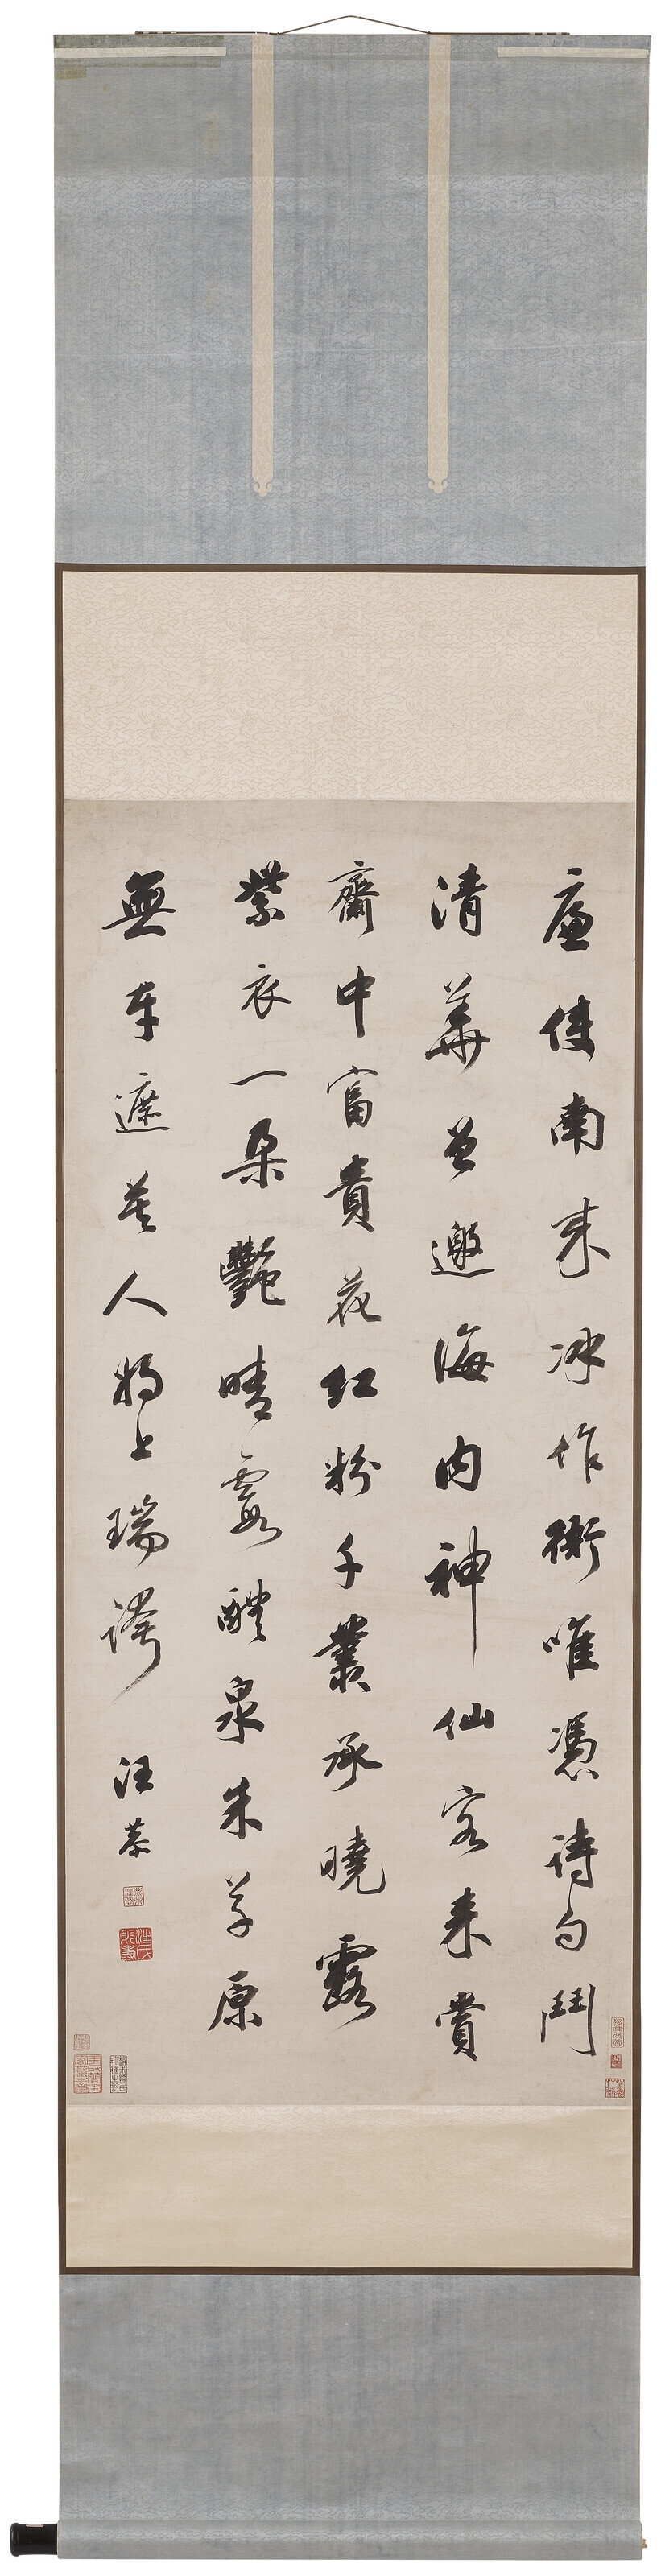 廉使南来冰作銜唯憑詩句鬥
清華曾邀海内神仙客来賞
齋中富貴花紅粉千叢承曉露
紫衣一朵艷晴霞醴泉朱草原
無事遮莫人將上瑞誇
汪恭